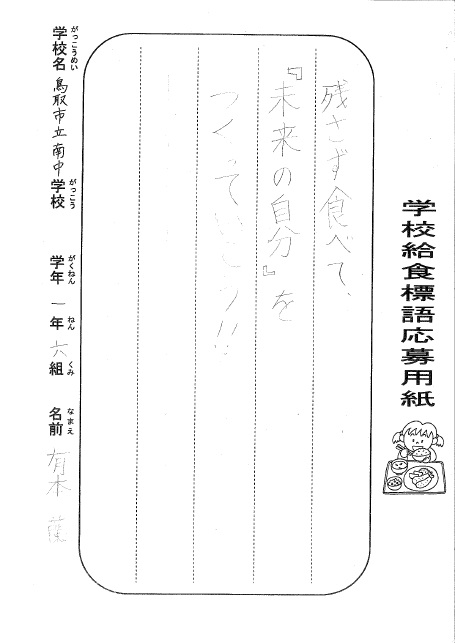 学校給食標語応募用紙
残さず食べて、
『未来の自分』を
つくっていこう!!
学校名 鳥取市立南中 学校 学年 一 年 六 組 名前 有木
がっこうめい がっこう がくねん ねん くみ なまえ